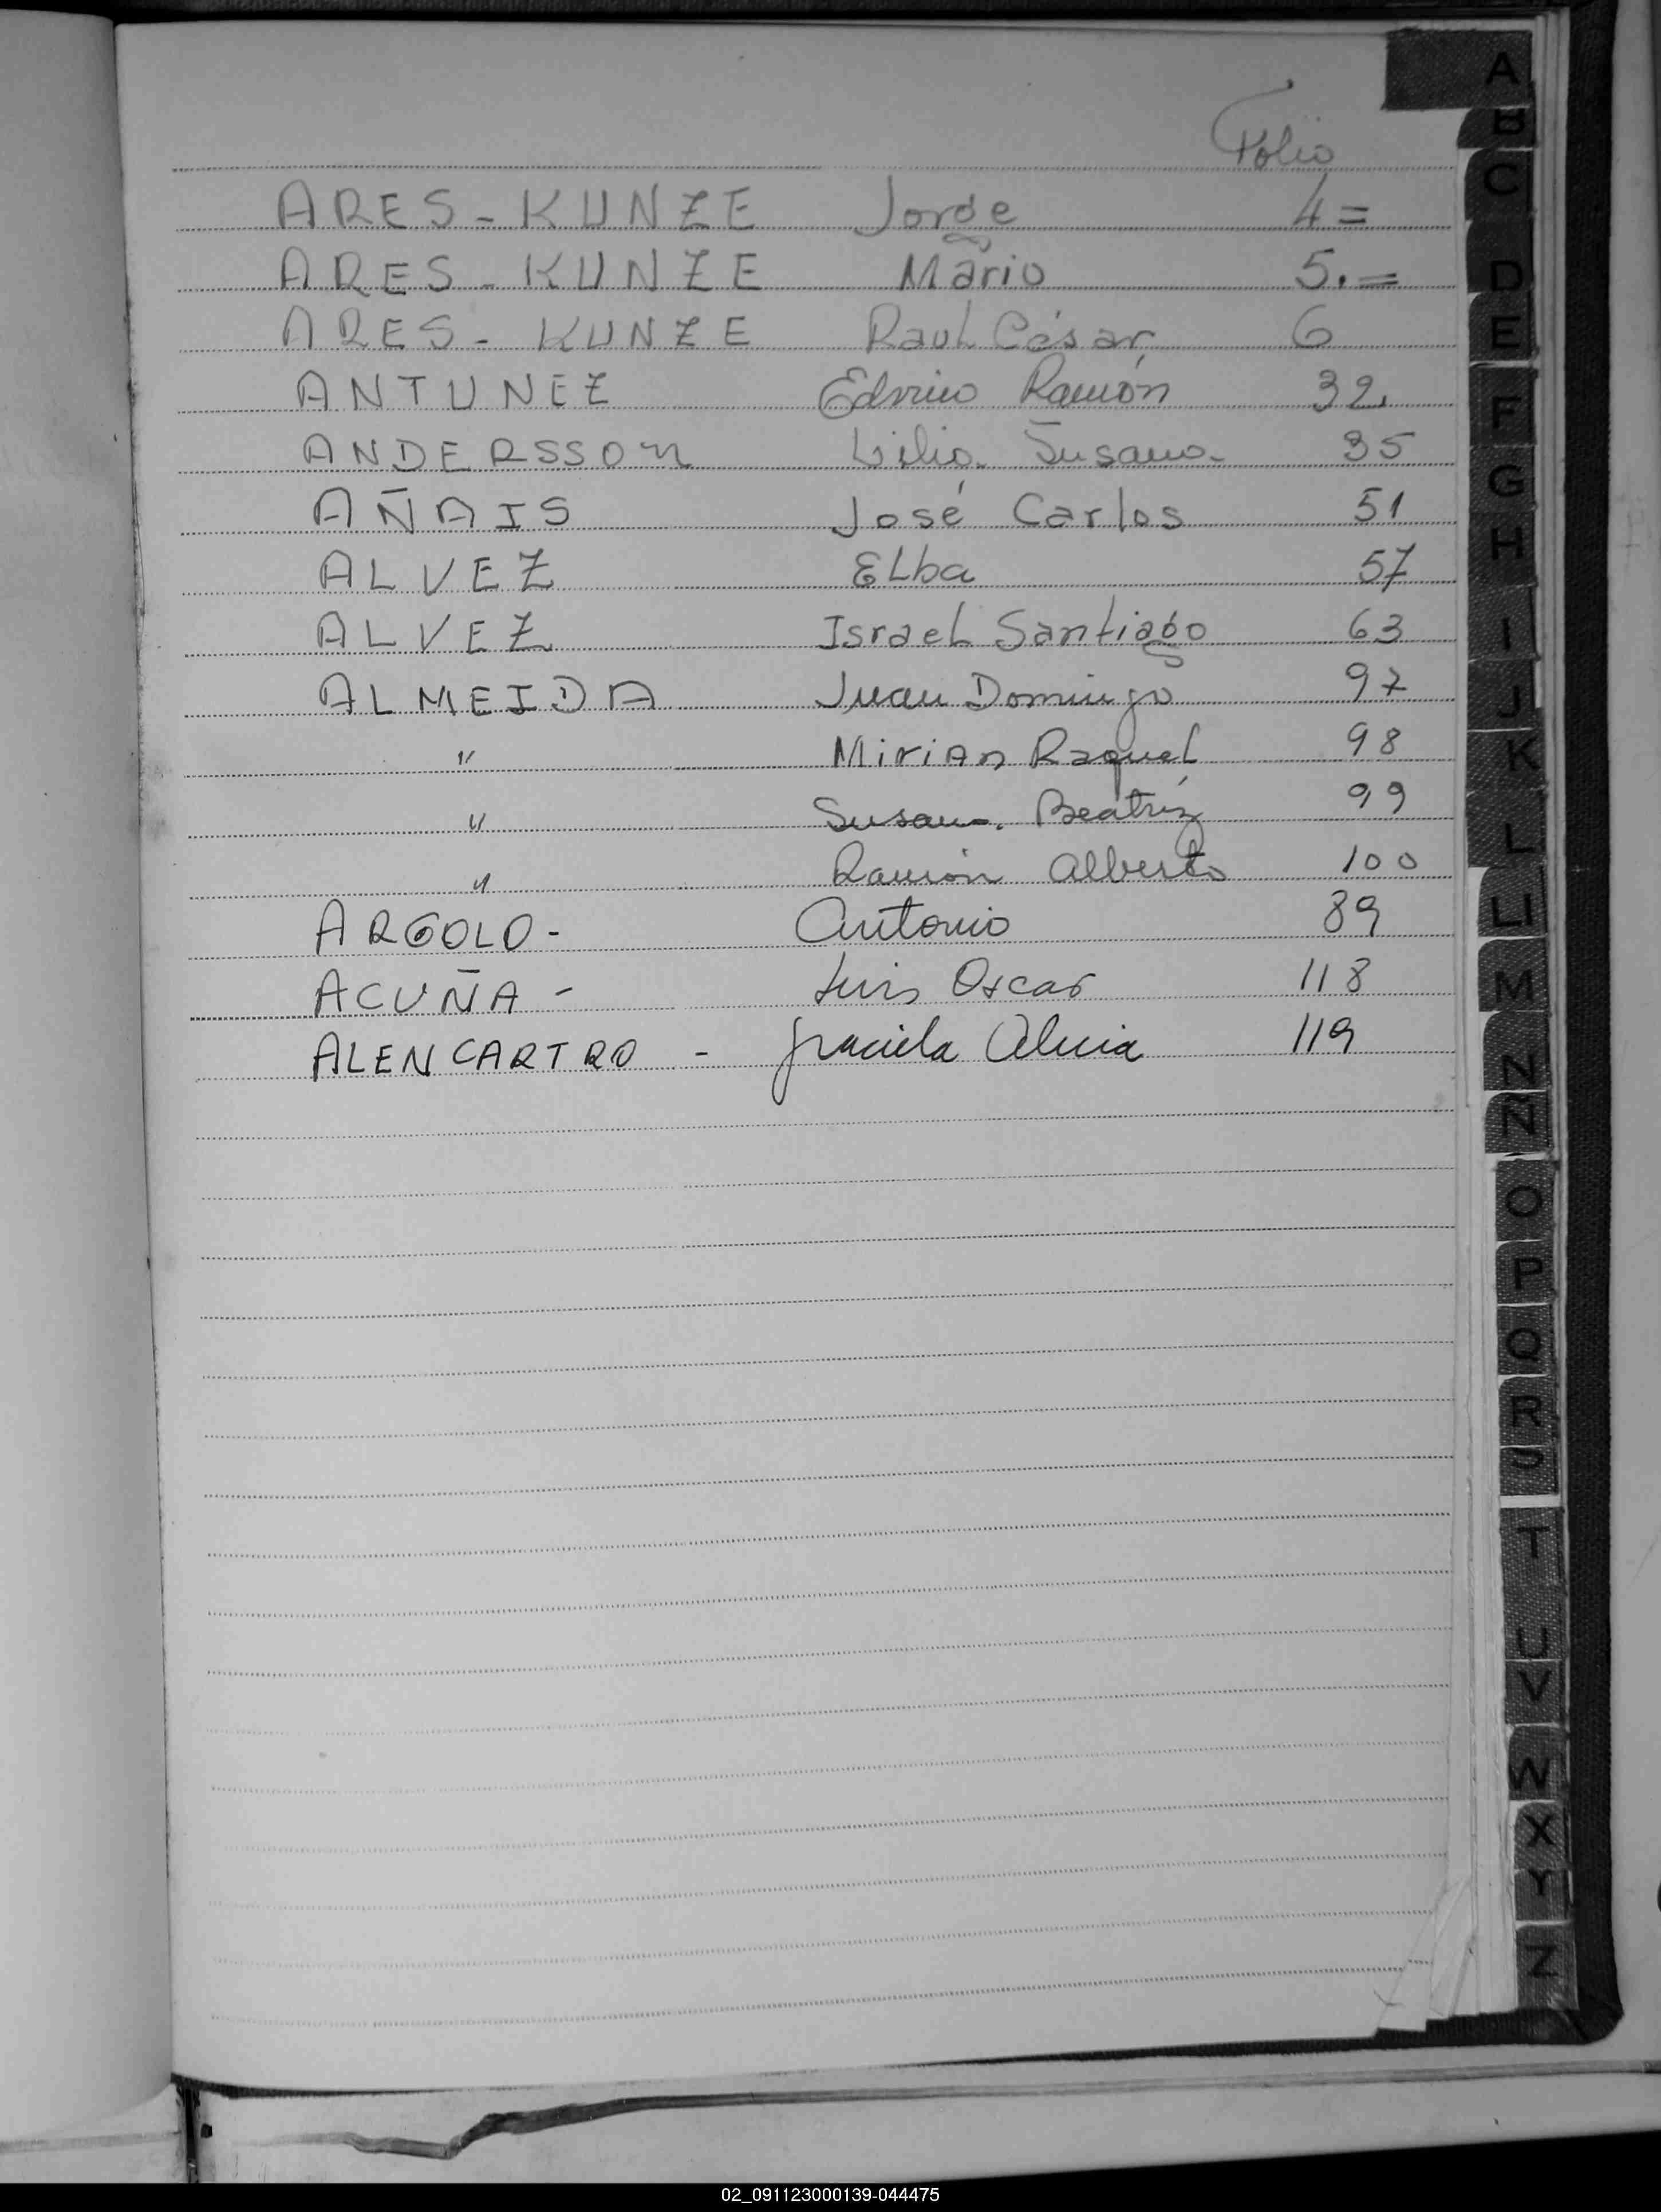 Folio
ARES - KUNZE Jorge 4 =
ARES - KUNZE Mario 5. =
ARES - KUNZE Raul César 6
ANTUNEZ Ramón 32.
ANDERSSON Lilia Susana 35
AÑAIS José Carlos 51
ALVEZ Elba 57
ALVEZ Israel Santiago 63
ALMEIDA Juan Domingo 97
" Mirian Raquel 98
" Susana Beatriz 99
" Ramón Alberto 100
ARGOLO - Antonio 89
ACUÑA - Luis Oscar 118
ALENCARTRO - Graciela Alicia 119
A
B
C
D
E
F
G
H
I
J
K
L
LL
M
N
Ñ
O
P
Q
R
S
T
U
V
W
X
Y
Z
02_091123000139-044475